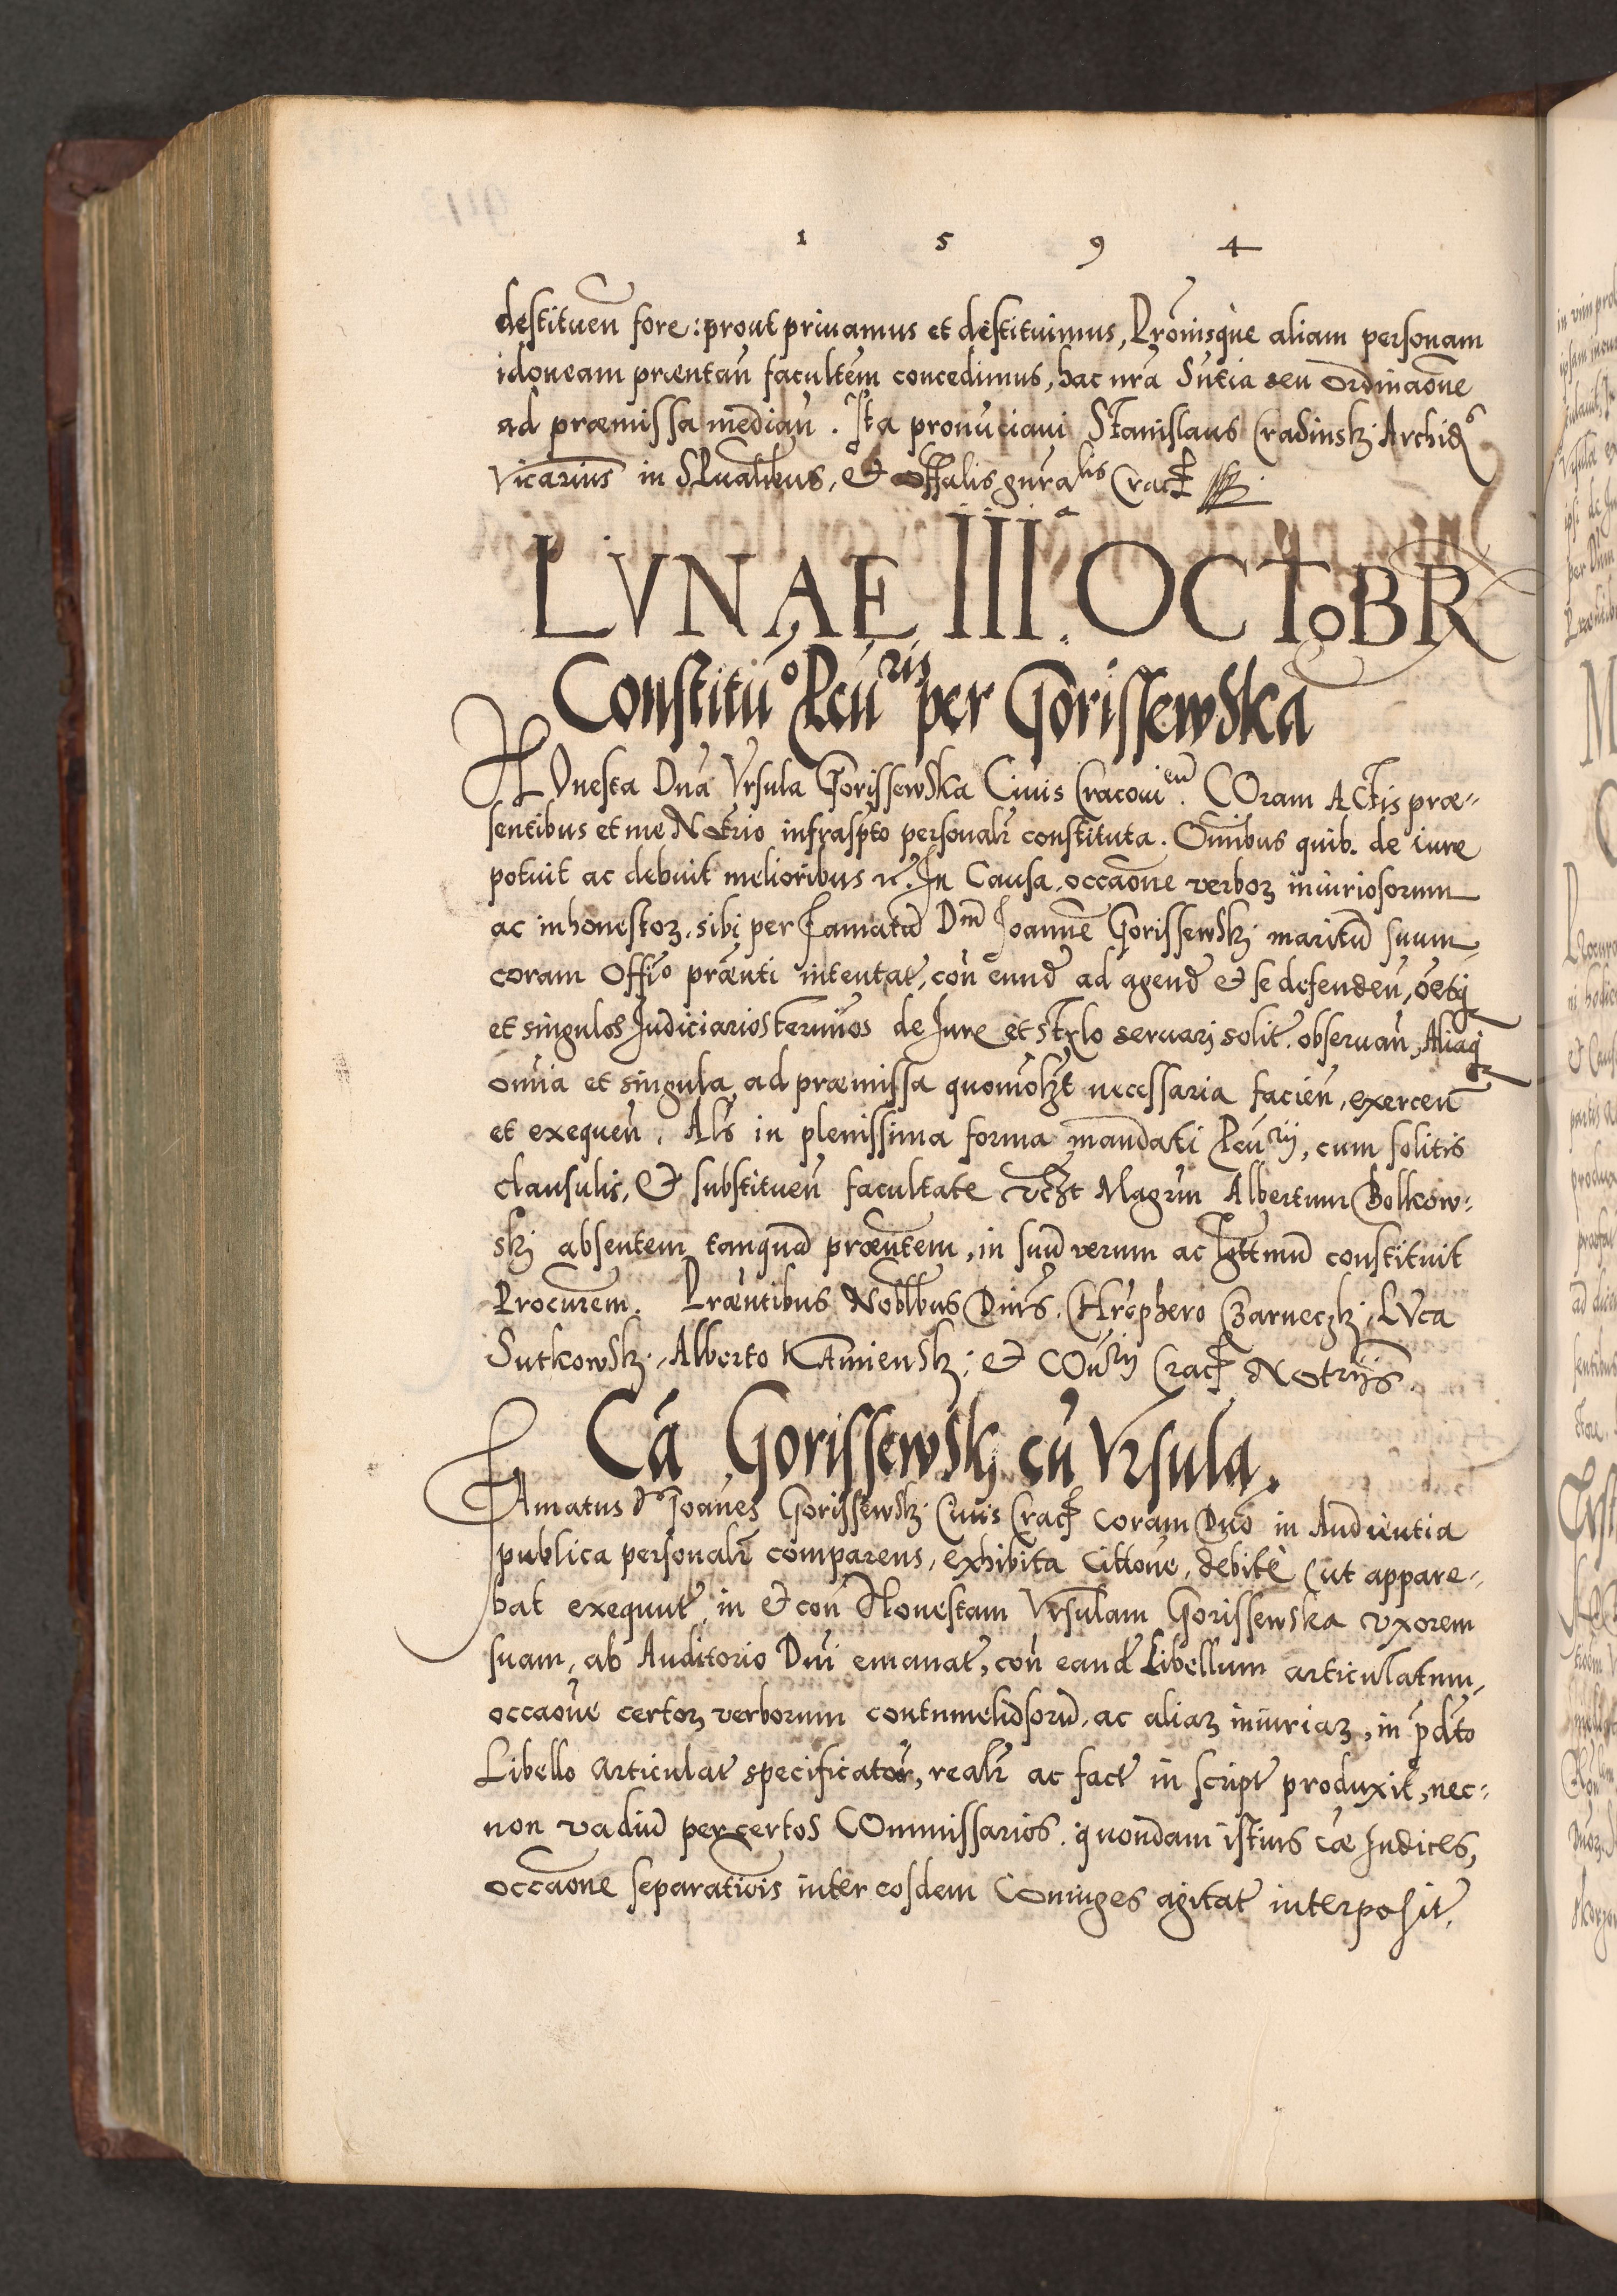 1 5 9 4
destituen̄ fore: prout priuamus et destituimus, Pro͞nisque aliam personam
idoneam præn̄tan̄ facultēm concedimus, hac nr̄a Sn̄tia seu Ordinaōne
ad præmissa median̄. Ita pronūciaui Stanislaus Cradinskj Archid͞s
Vicarius in SPualibus, et Offalis gn̄ralis Crac͞
LVNAE IIIa. OCTOBR
Constitu͞o Pcu͞ris per Gorissewska
HOnesta Dn̄a Vrsula Gorissewska Ciuis Cracouien̄. COram ACtis præ-
sentibus et me Notr̄io infrasp̄to personalr̄ constituta. Om̄ibus quib. de iure
potuit ac debuit melioribus etc. In Causa, occaōne verboꝝ iniuriosorum
ac inhonestoꝝ, sibi per Famatū Dnm̄ Joannē Gorissewskj maritū suum
coram Offio͞ præn̄ti intentat͞, con̄ eund͞ ad agend͞ et se defenden̄, oēsq
et singulos Judiciarios terminos de Jure et stylo seruarj solit͞. obseruan̄, Aliaq
om̄ia et singula ad præmissa quomōlꝫt necessaria facien̄, exercen̄
et exequen̄. Alr̄ in plenissima forma mandati Pcu͞rij, cum solitis
clausulis, et substituen̄ facultate vc̄ꝫt Magr̄m Albertum Bolkow-
skj absentem tanquā præn̄tem, in suū verum ac Lgttmū constituit
Procurēm. Præn̄tibus Nobl̄bus Dn̄is. CHr̄ophero Czarneczkj, LVca
Sutkowskj, Alberto Kamienskj et COn̄rij Crac͞ Notr̄ijs.
Cā Gorissewskj cū Vrsula.
FAmatus d͞s Joan̄es Gorissewskj Ciuis Crac͞ coram Dn̄o in Audientia
publica personalr̄ comparens, exhibita Cittōne, debitè (ut appare-
bat exequut͞, in et con̄ Honestam Vrsulam Gorissewska vxorem
suam, ab Auditorio Dn̄i emanat͞, con̄ eand͞ Libellum articulatum,
occaōne certoꝝ verborum contumeliosorū, ac aliaꝝ iniuriaꝝ, in p̄dto
Libello articulat͞ specificator̄, realr̄ ac fact͞ in script͞ produxit, nec-
non vadiū per certos COmmissarios. quondam istius cæ Judices,
occaōne separatiōis inter eosdem Coniuges agitat͞ interposit͞,